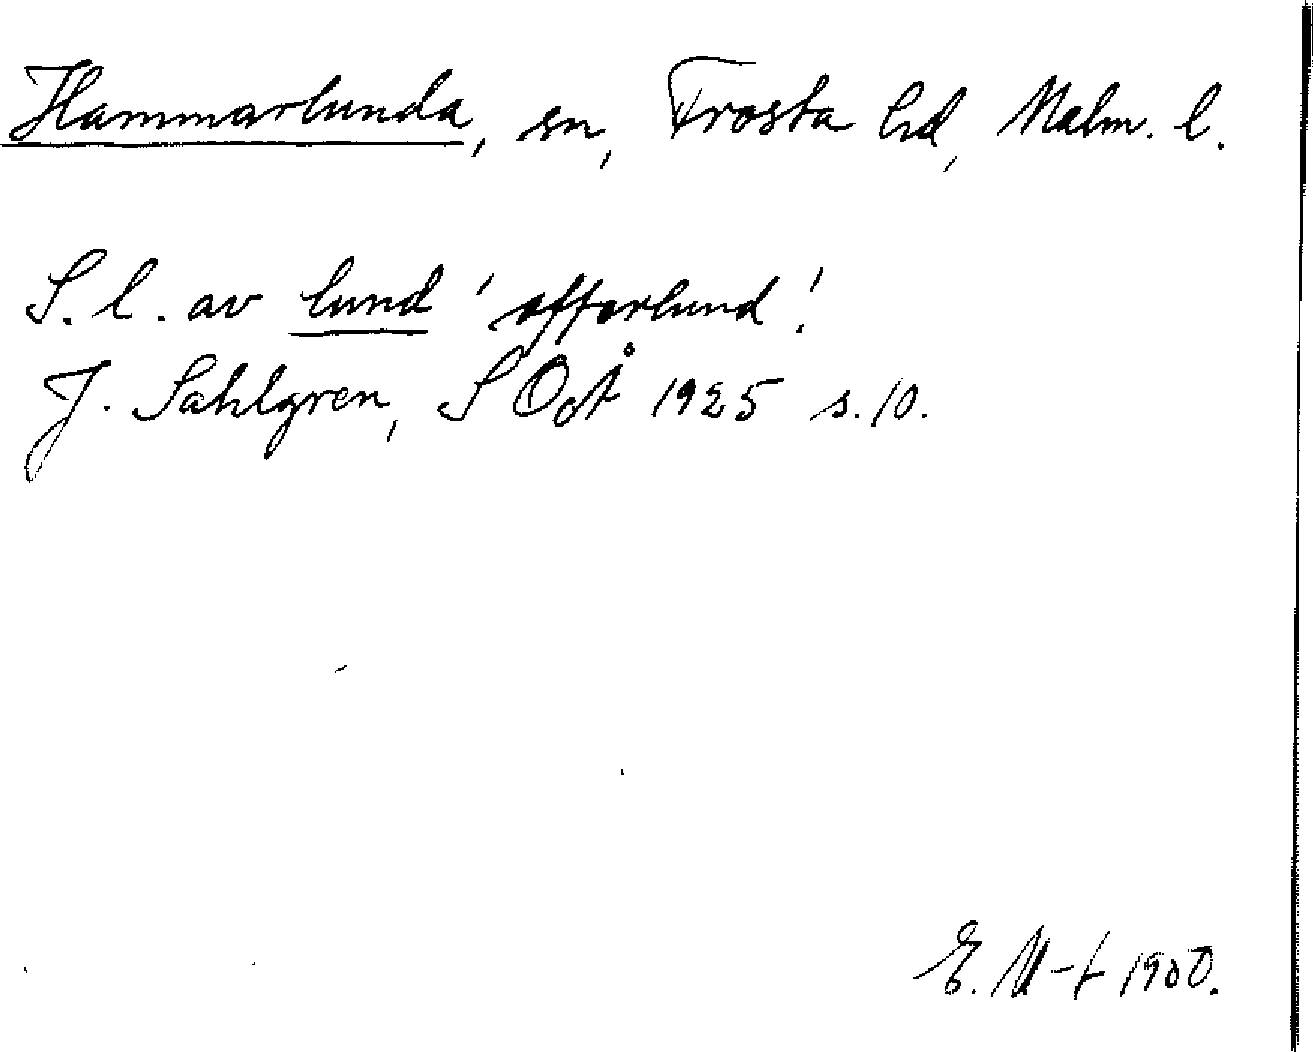 Hammarlunda, sn, Frosta hd, Malm. l.
S. l. av lund 'offerlund'.
J. Sahlgren, SOoÅ 1925 s. 10.
E. M-t 1900.